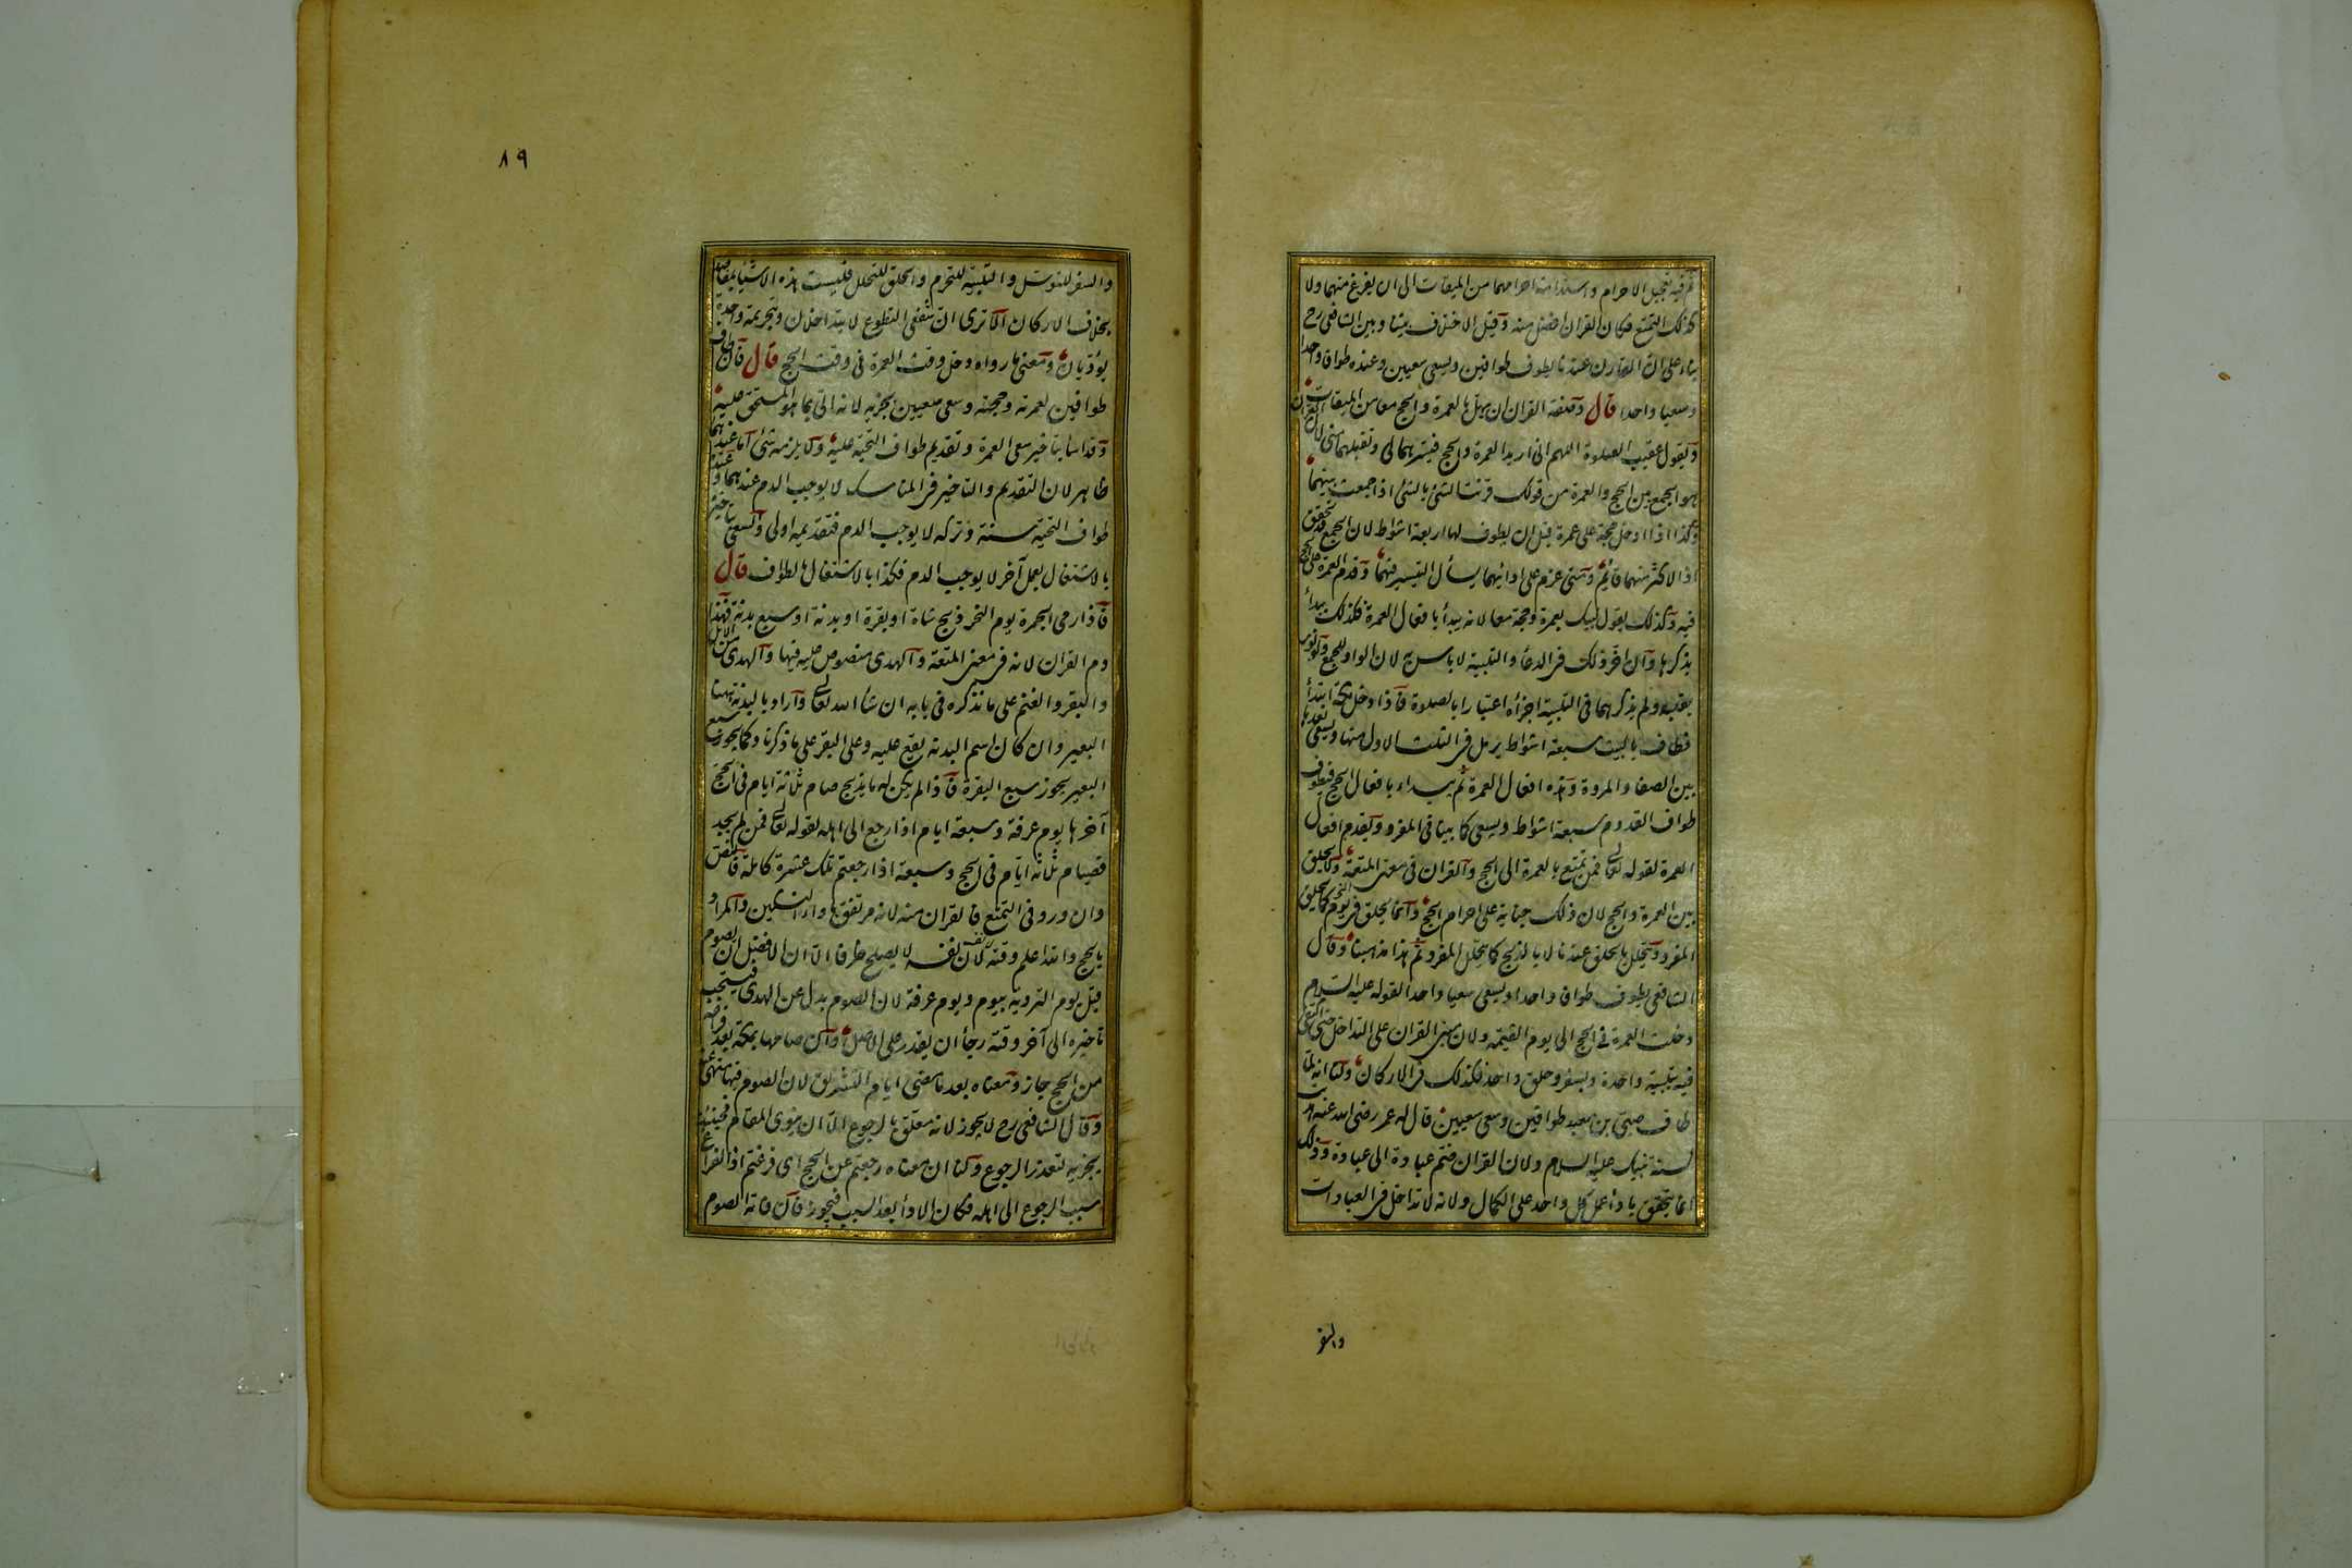 ثم فيه تعجيل الاحرام واستدامة احرامهما من الميقات الى ان يفرغ منهما ولا
كذلك التمتع فكان القران افضل منه وقيل الاختلاف بيننا وبين الشافعى رح
بناء على ان القارن عندنا يطوف طوافين ويسعى سعيين وعنده طوافا واحدا
وسعيا واحدا قال وصفة القران ان يهل بالعمرة والحج معا من الميقات
ويقول عقيب الصلوة اللهم انى اريد العمرة والحج فيسرهما لى وتقبلهما منى لان القران
هو الجمع بين الحج والعمرة من قولك قرنت الشئ بالشئ اذا جمعت بينهما
وكذا اذا ادخل حجة على عمرة قبل ان يطوف لها اربعة اشواط لان الجمع قد تحقق
اذ الاكثر منهما قائم ومتى عزم على ادائهما يسأل التيسير فيهما وقدم العمرة على الحج
فيه وكذلك يقول لبيك بعمرة وحجة معا لانه يبدأ بافعال العمرة فكذلك يبدأ
بذكرها وان اخر ذلك فى الدعاء والتلبية لا باس به لان الواو للجمع ولو نوى
بقلبه ولم يذكرهما فى التلبية اجزأه اعتبارا بالصلوة فاذا دخل مكة ابتدأ
فطاف بالبيت سبعة اشواط يرمل فى الثلث الاول منها ويسعى بعدها
بين الصفا والمروة وهذه افعال العمرة ثم يبداء بافعال الحج فيطوف
طواف القدوم سبعة اشواط ويسعى كما بينا فى المفرد ويقدم افعال
العمرة لقوله تعالى فمن تمتع بالعمرة الى الحج والقران فى معنى المتعة ولا يحلق
بين العمرة والحج لان ذلك جناية على احرام الحج وانما يحلق فى يوم النحر كما يحلق
المفرد ويتحلل بالحلق عندنا لا بالذبح كما يتحلل المفرد ثم هذا مذهبنا وقال
الشافعى يطوف طوافا واحدا ويسعى سعيا واحدا لقوله عليه السلام
دخلت العمرة فى الحج الى يوم القيمة ولان مبنى القران على التداخل حتى اكتفى
فيه بتلبية واحدة وسفر وحلق واحد فكذلك فى الاركان ولنا انه لما
طاف صبى بن معبد طوافين وسعى سعيين قال له عمر رضى الله عنه هديت
لسنة نبيك عليه السلام ولان القران ضم عبادة الى عبادة وذلك
انما يتحقق باداء عمل كل واحد على الكمال ولانه لا تداخل فى العبادات
والسفر
٨٩
والسفر للتوسل والتلبية للتحرم والحلق للتحلل فليست هذه الاشياء بمقاصد
بخلاف الاركان الا ترى ان شفعى التطوع لا يتداخلان وبتحريمة واحدة
يؤديان ومعنى ما رواه دخل وقت العمرة فى وقت الحج قال فان طاف
طوافين لعمرته وحجته وسعى سعيين يجزيه لانه اتى بما هو المستحق عليه
وقد اساء بتاخير سعى العمرة وتقديم طواف التحية عليه ولا يلزمه شئ اما عندهما
ظاهر لان التقديم والتاخير فى المناسك لا يوجب الدم عندهما وعنده
طواف التحية سنة وتركه لا يوجب الدم فتقديمه اولى والسعى بتاخيره
بالاشتغال بعمل آخر لا يوجب الدم فكذا بالاشتغال بالطواف قال
فاذا رمى الجمرة يوم النحر ذبح شاة او بقرة او بدنة او سبع بدنة فهذا
دم القران لانه فى معنى المتعة والهدى منصوص عليه فيها والهدى من الابل
والبقر والغنم على ما نذكره فى بابه ان شاء الله تعالى واراد بالبدنة ههنا
البعير وان كان اسم البدنة يقع عليه وعلى البقر على ما ذكرنا وكما يجوز سبع
البعير يجوز سبع البقرة فاذا لم يكن له ما يذبح صام ثلاثة ايام فى الحج
آخرها يوم عرفة وسبعة ايام اذا رجع الى اهله لقوله تعالى فمن لم يجد
فصيام ثلثة ايام فى الحج وسبعة اذا رجعتم تلك عشرة كاملة فالنص
وان ورد فى التمتع فالقران مثله لانه مرتفق باداء النسكين والمراد
بالحج والله اعلم وقته لان نفسه لا يصلح ظرفا الا ان الافضل ان يصوم
قبل يوم التروية بيوم ويوم عرفة لان الصوم بدل عن الهدى فيستحب
تاخيره الى آخر وقته رجاء ان يقدر على الاصل وان صامها بمكة بعد فراغه
من الحج جاز ومعناه بعد ما مضى ايام التشريق لان الصوم فيها منهى عنه
وقال الشافعى رح لا يجوز لانه معلق بالرجوع الا ان ينوى المقام فحينئذ
يجزيه لتعذر الرجوع ولنا ان معناه رجعتم عن الحج اى فرغتم اذ الفراغ
سبب الرجوع الى اهله فكان الاداء بعد السبب فيجوز فان فاته الصوم